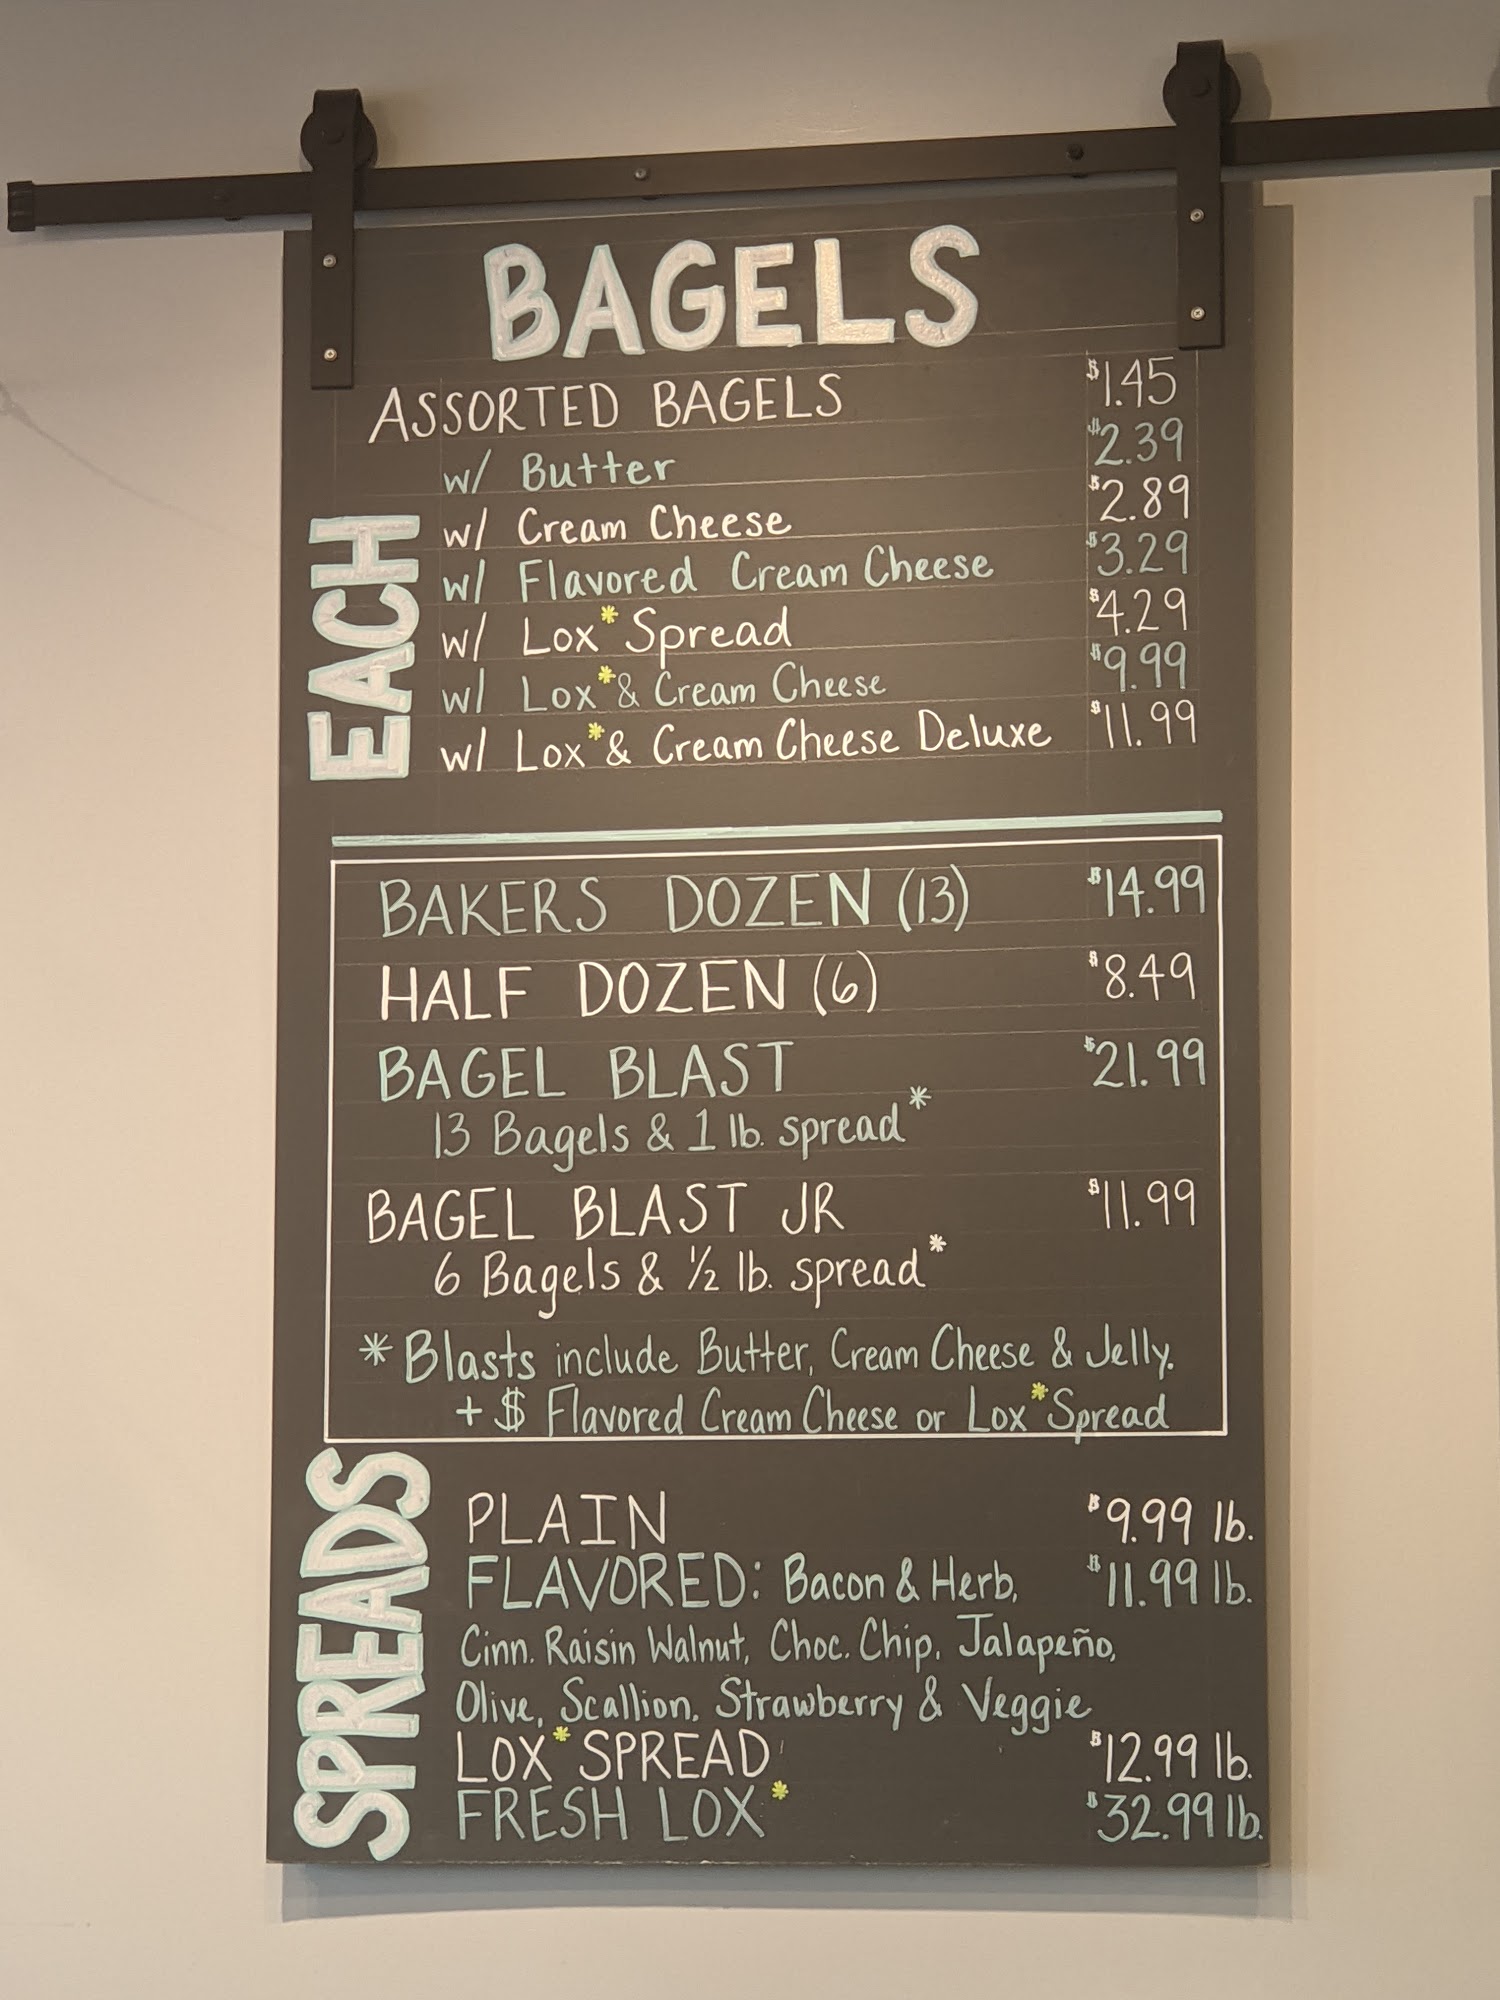 BAGELS
ASSORTED BAGELS $1.45
w/ Butter $2.39
w/ Cream Cheese $2.89
w/ Flavored Cream Cheese $3.29
w/ Lox* Spread $4.29
w/ Lox* & Cream Cheese $9.99
w/ Lox* & Cream Cheese Deluxe $11.99
EACH
BAKERS DOZEN (13) $14.99
HALF DOZEN (6) $8.49
BAGEL BLAST $21.99
13 Bagels & 1 lb. spread*
BAGEL BLAST JR $11.99
6 Bagels & ½ lb. spread*
* Blasts include Butter, Cream Cheese & Jelly.
+ $ Flavored Cream Cheese or Lox* Spread
SPREADS
PLAIN $9.99 lb.
FLAVORED: Bacon & Herb, $11.99 lb.
Cinn. Raisin Walnut, Choc. Chip, Jalapeño,
Olive, Scallion, Strawberry & Veggie
LOX* SPREAD $12.99 lb.
FRESH LOX* $32.99 lb.